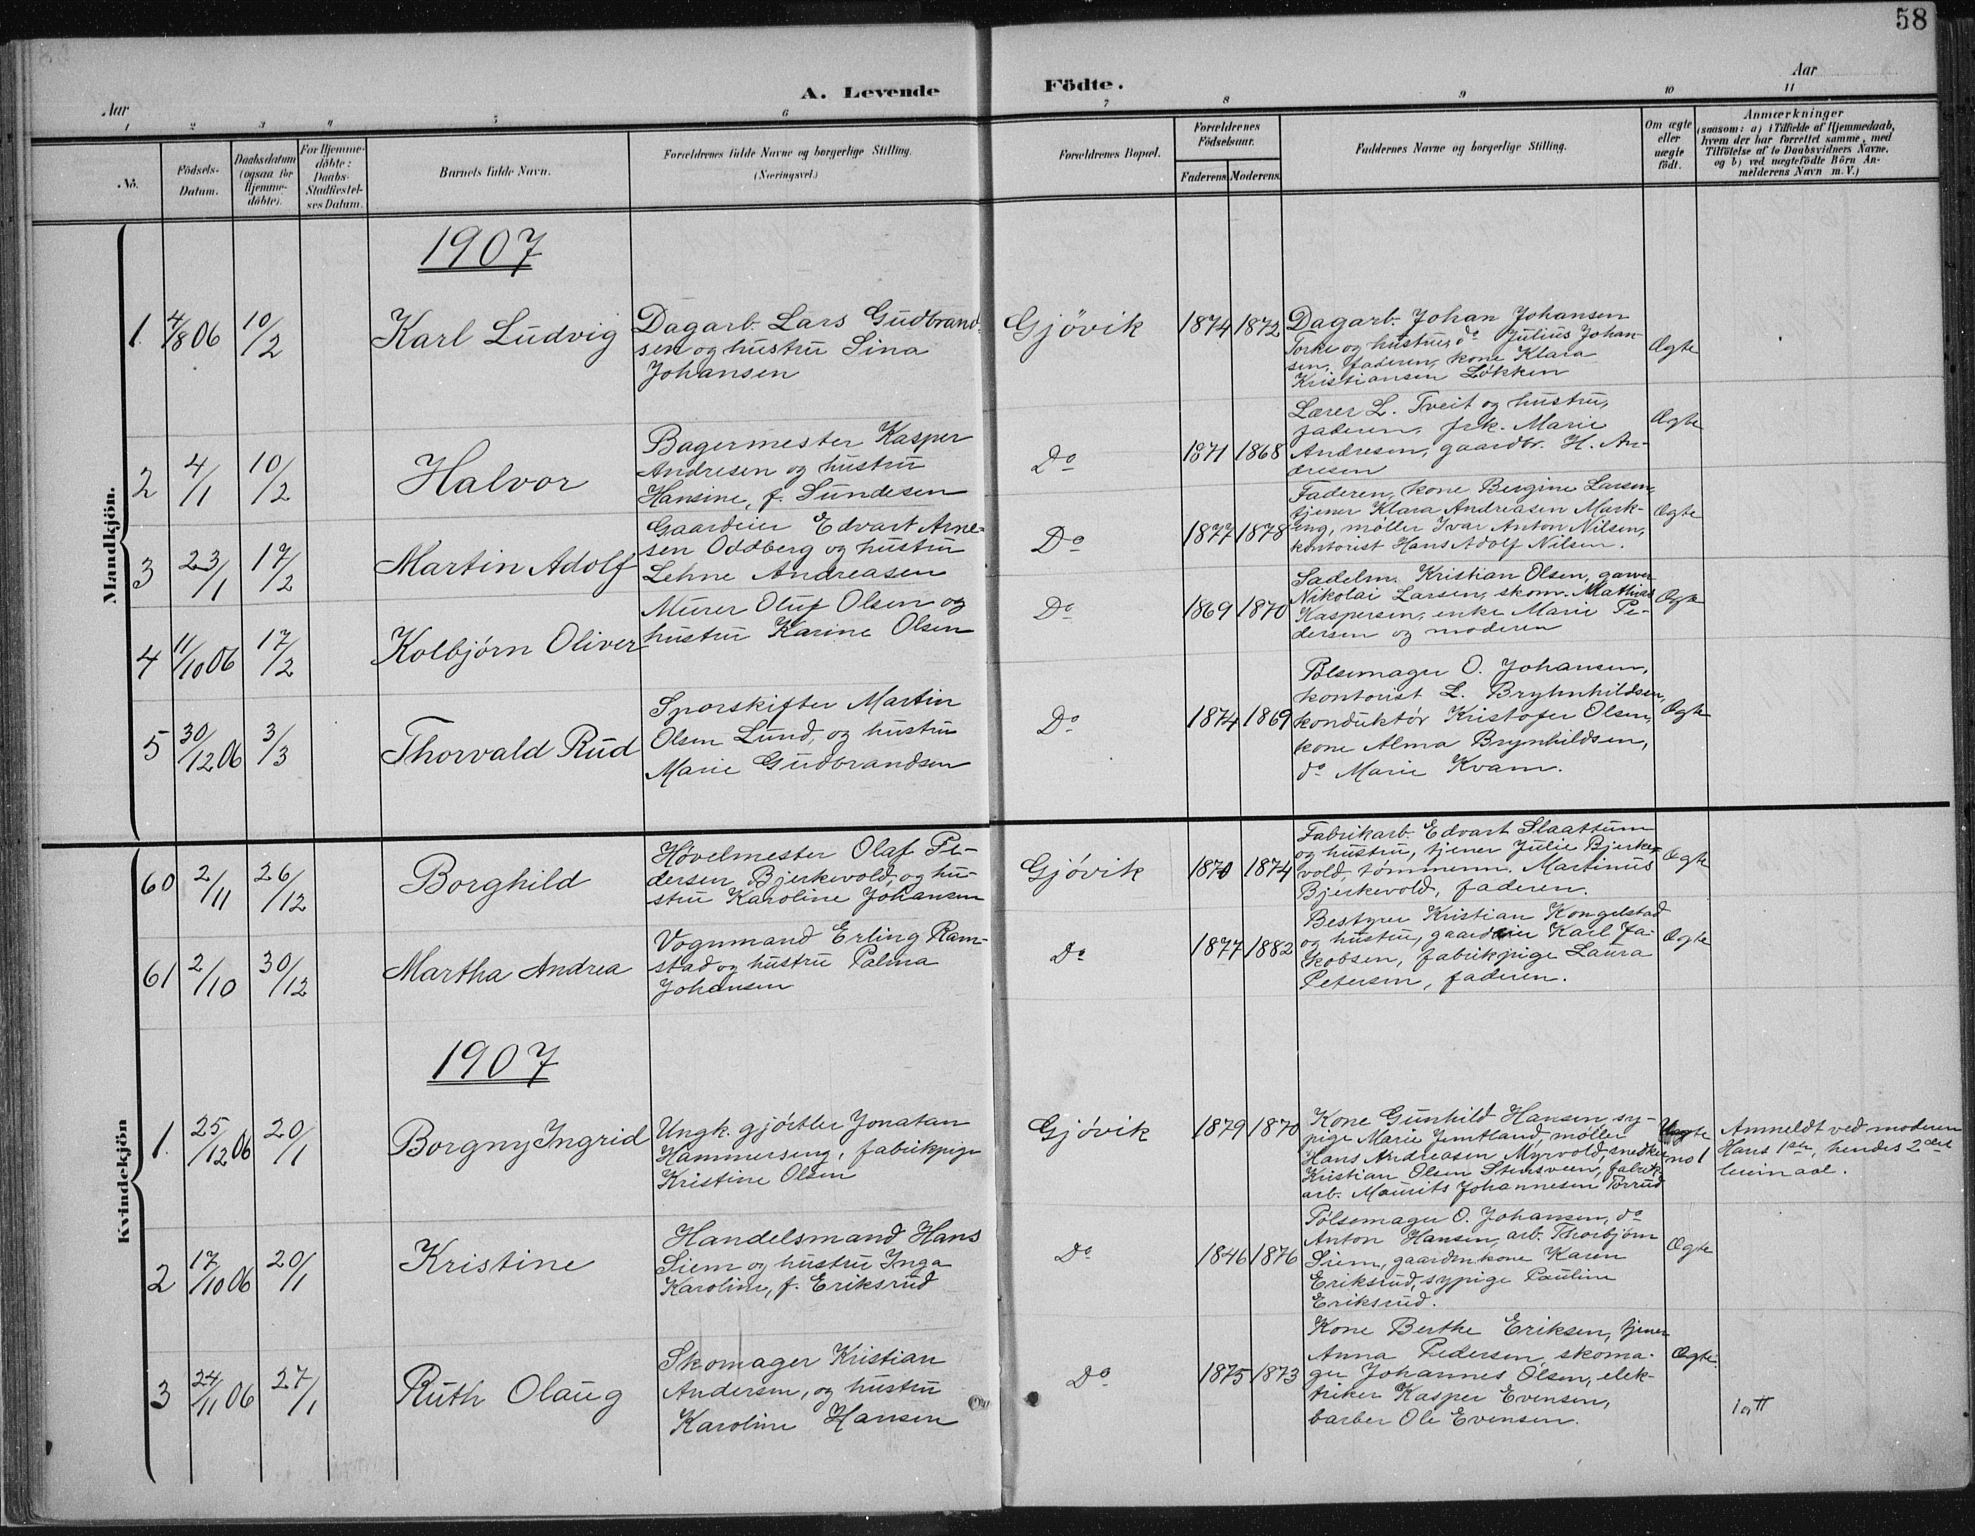 58
A. Levende Födte.
Aar
Aar
1 2 3 4 5 6 7 8 9 10 11
No.
Födsels-Datum.
Daabsdatum (ogsaa for Hjemme-döbte).
For Hjemme-döbte: Daabs-Stadfæstelses Datum.
Barnets fulde Navn.
Forældrenes fulde Navne og borgerlige Stilling.
(Næringsvei.)
Forældrenes Bopæl.
Forældrenes Födselsaar.
Faderens. Moderens.
Faddernes Navne og borgerlige Stilling.
Om ægte eller uægte födt.
Anmærkninger
(saasom: a) i Tilfælde af Hjemmedaab,
hvem der har forrettet samme, med
Tilföielse af to Daabsvidners Navne,
og b) ved uægtefödte Börn An-
melderens Navn m. V.)
Mandkjön.
1907
1. 4/8 06 10/2 Karl Ludvig
Dagarb. Lars Gudbrand-
sen og hustru Sina
Johansen
Gjøvik 1874 1872
Dagarb. Johan Johansen
Torke og hustru, do Julius Johan-
sen, faderen, kone Klara
Kristiansen Løkken
Ægte
2 4/1 10/2 Halvor
Bagermester Kasper
Andresen og hustru
Hansine, f. Sundesen
Do 1871 1868
Lærer L. Tveit og hustru,
faderen, frk. Marie
Andresen, gaardbr. H. An-
dresen
Ægte
3 23/1 17/2 Martin Adolf
Gaardeier Edvart Arne-
sen Oddberg og hustru
Lehne Andreasen
Do 1877 1878
Faderen, kone Bergine Larsen,
tjener Klara Andreasen Mark-
eng, møller Ivar Anton Nilsen,
kontorist Hans Adolf Nilsen.
Ægte
4 11/10 06 17/2 Kolbjørn Oliver
Murer Oluf Olsen og
hustru Karine Olsen
Do 1869 1870
Sadelm. Kristian Olsen, garver
Nikolai Larsen, skom. Mathias
Kaspersen, enke Marie Pe-
dersen og moderen
Ægte
5 30/12 06 3/3 Thorvald Rud
Sporskifter Martin
Olsen Lund, og hustru
Marie Gudbrandsen
Do 1874 1869
Pølsemager O. Johansen,
kontorist L. Bryhnhildsen,
konduktør Kristofer Olsen,
kone Alma Brynhildsen,
do Marie Kvam.
Ægte
Kvindekjön
60 2/11 26/12 Borghild
Høvelmester Olaf Pe-
dersen Bjerkevold, og hu-
stru Karoline Johansen
Gjøvik 1870 1874
Fabrikarb. Edvart Slaattum
og hustru, tjener Julie Bjerke-
vold, tømmerm. Martinus
Bjerkevold, faderen.
Ægte
61 2/10 30/12 Martha Andrea
Vognmand Erling Ram-
stad og hustru Palma
Johansen
Do 1877 1882
Bestyrer Kristian Kongelstad
og hustru, gaardeier Karl Ja-
kobsen, fabrikpige Laura
Petersen, faderen.
Ægte
1907
1. 25/12 06 20/1 Borgny Ingrid
Ungk. gjørtler Jonatan
Hammerseng, fabrikpige
Kristine Olsen
Gjøvik 1879 1870
Kone Gunhild Hansen, sy-
pige Marie Jemtland, møller
Hans Andreasen Myrvold, snedker
Kristian Olsen Stensveen, fabrik-
arb. Maurits Johannesen Torrud
Uægte
no 1
Anmeldt ved moderen
Hans 1ste, hendes 2det
leiermaal.
2 17/10 06 20/1 Kristine
Handelsmand Hans
Siem og hustru Inga
Karoline, f. Eriksrud
Do 1846 1876
Pølsemager O. Johansen, do
Anton Hansen, arb. Thorbjørn
Siem, gaardm.kone Karen
Eriksrud, sypige Pauline
Eriksrud.
Ægte
3 24/11 06 27/1 Ruth Olaug
Skomager Kristian
Andersen, og hustru
Karoline Hansen
Do 1875 1873
Kone Berthe Eriksen, tjener
Anna Pedersen, skoma-
ger Johannes Olsen, elek-
triker Kasper Evensen,
barber Ole Evensen.
Ægte